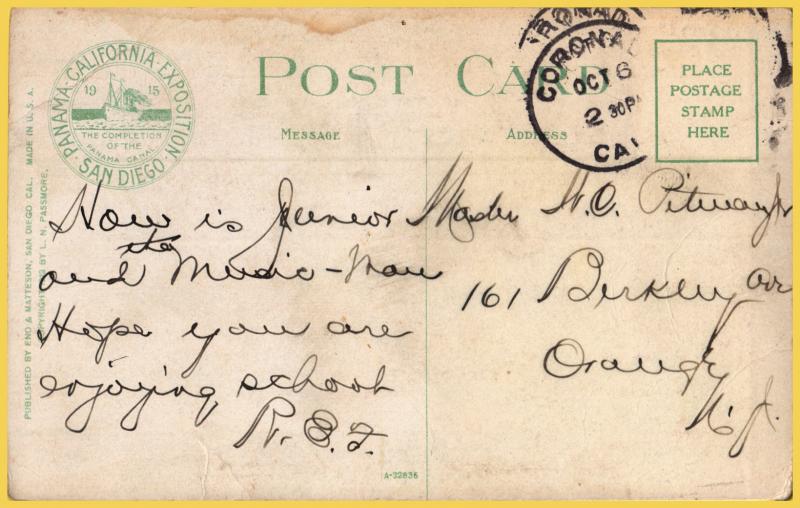 PANAMA-CALIFORNIA-EXPOSITION
1915
THE COMPLETION
OF THE
PANAMA CANAL
SAN DIEGO
POST CARD
MESSAGE
ADDRESS
CORONADO
OCT 6
2 30P
CAL
PLACE
POSTAGE
STAMP
HERE
PUBLISHED BY ENO & MATTESON, SAN DIEGO CAL. MADE IN U.S.A.
BY L. N. PASSMORE.
How is Junior
and the Music-Man
Hope you are
enjoying school
R. B. F.
Master H. C. Pitway Jr
161 Berkley Av
Orange
N. J.
A-32836